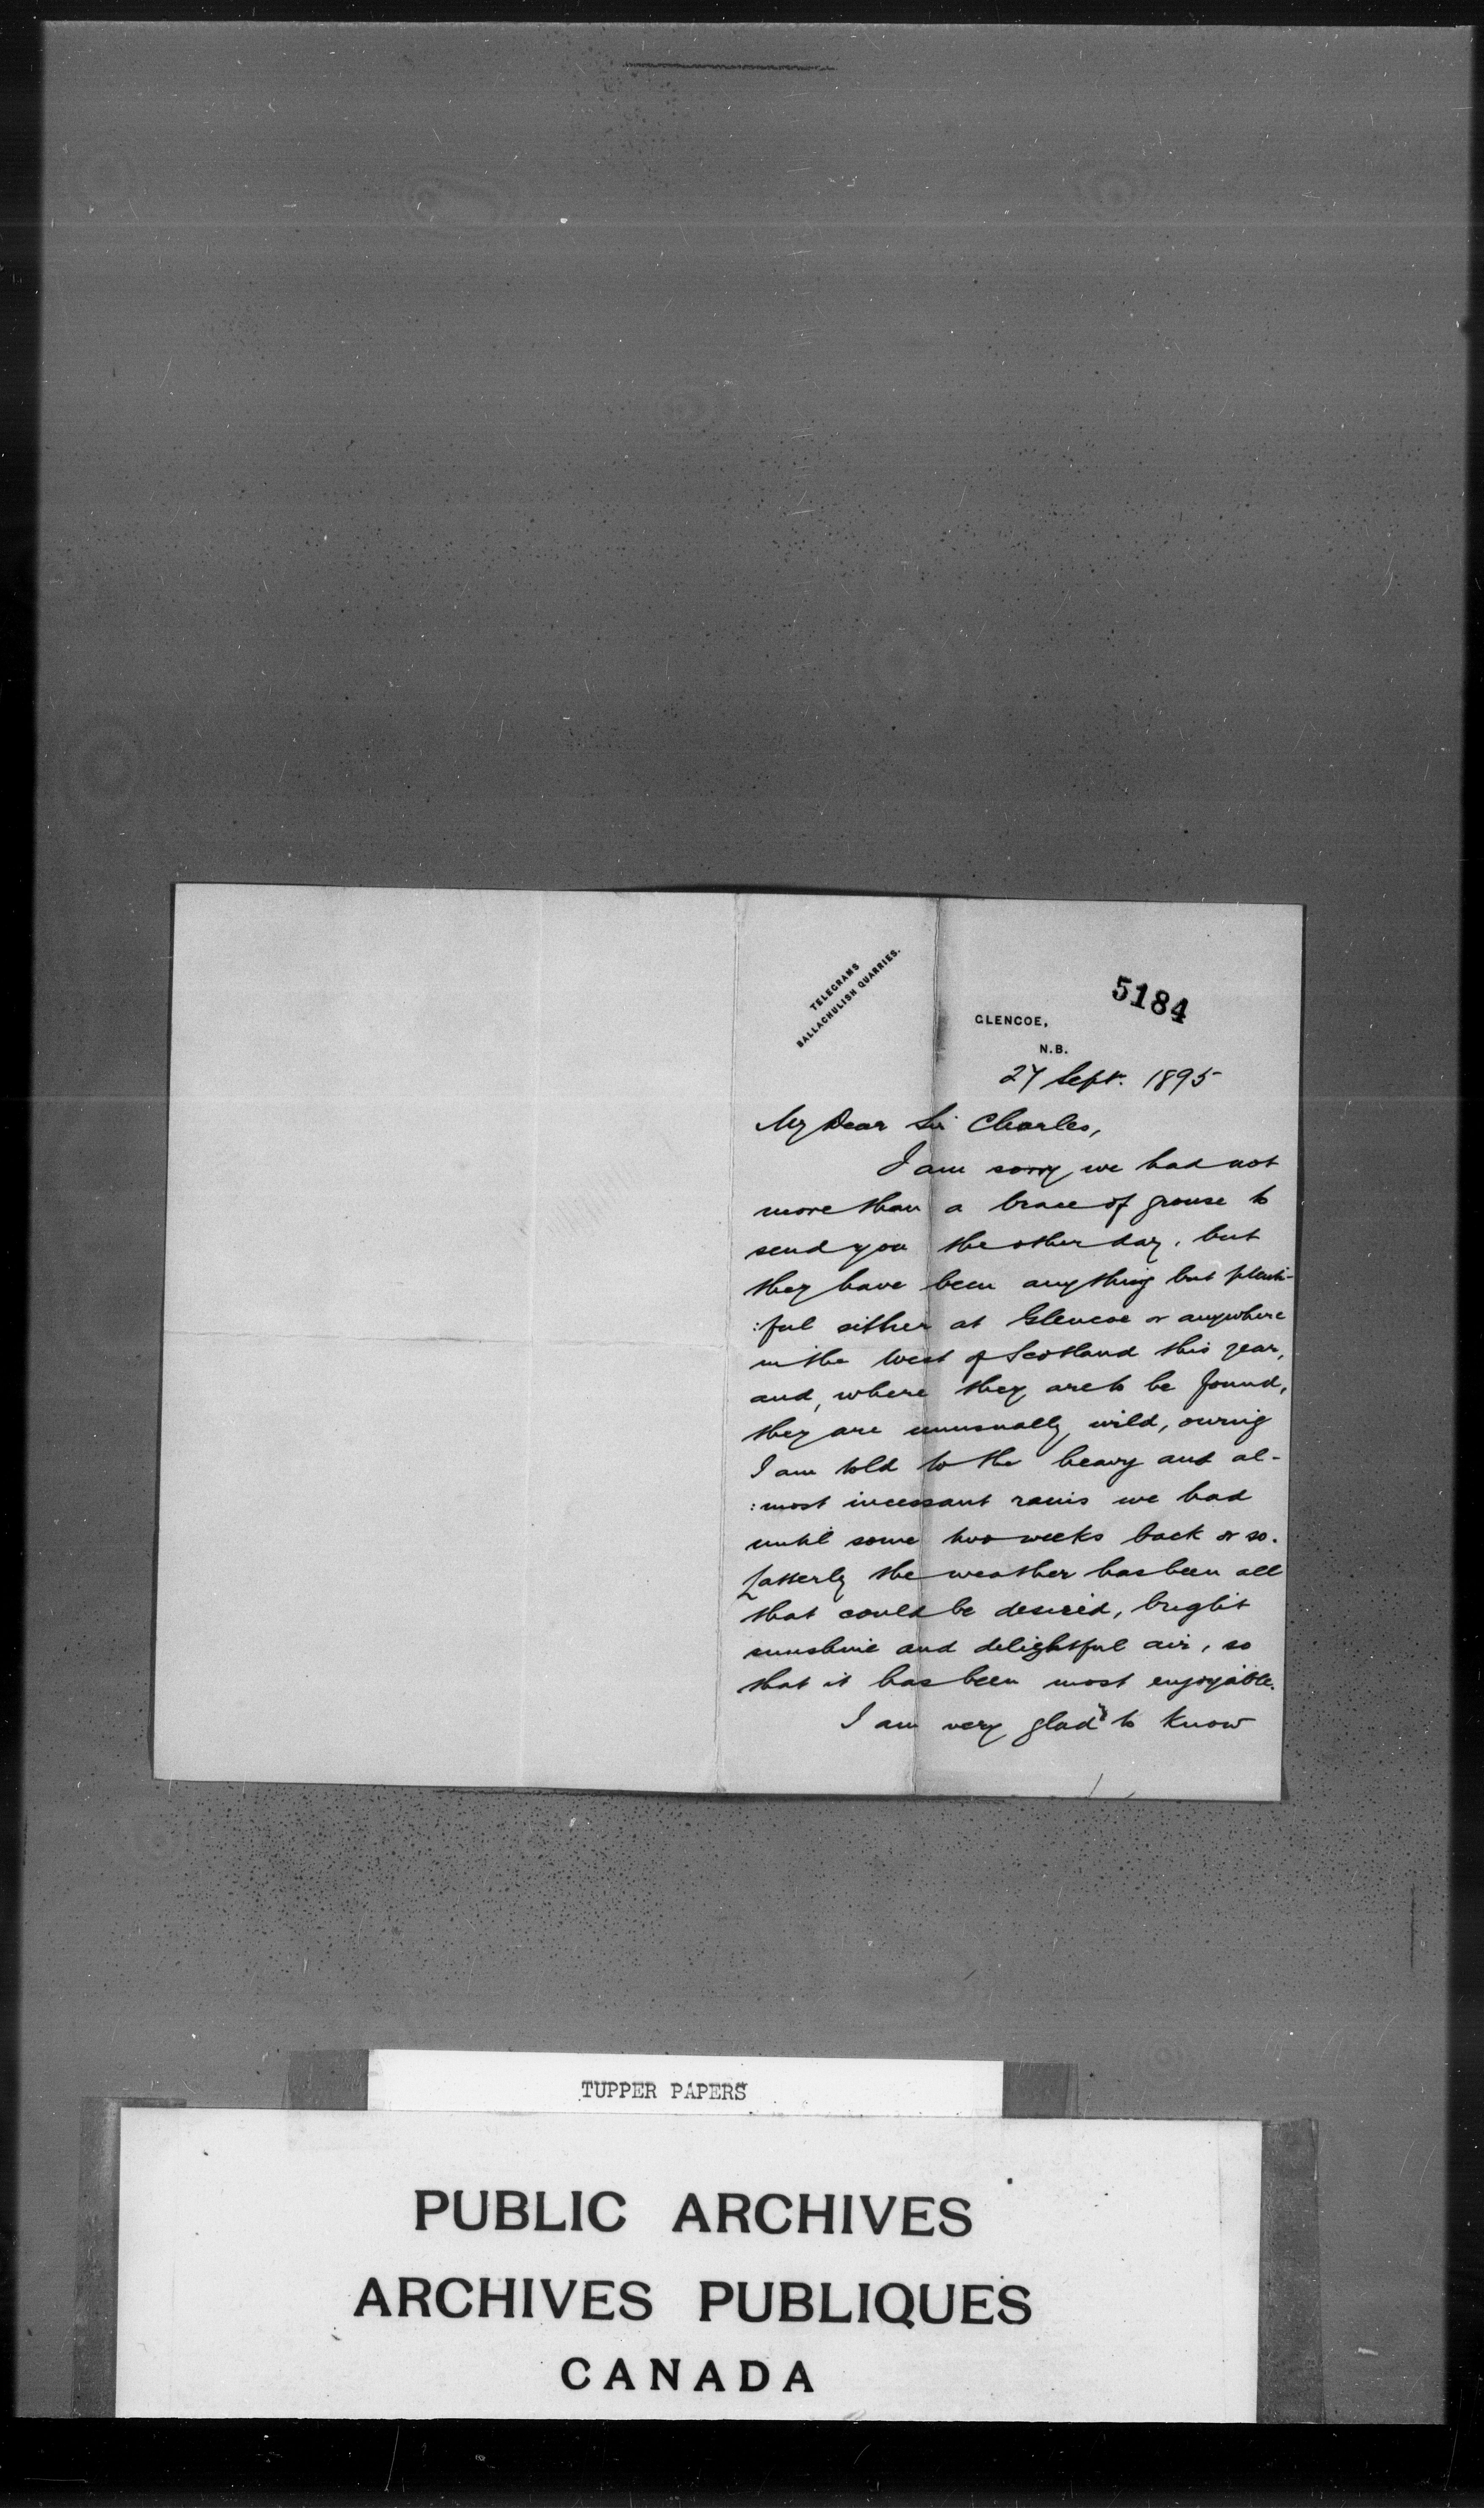 TELEGRAMS
BALLACHULISH QUARRIES.
5184
GLENCOE,
N.B.
27 Sept. 1895
My Dear Sir Charles,
I am sorry we had not
more than a brace of grouse to
send you the other day, but
they have been anything but plenti-
:ful either at Glencoe or anywhere
in the West of Scotland this year,
and, where they are to be found,
they are unusually wild, owing
I am told to the heavy and al-
:most incessant rains we had
until some two weeks back or so.
Latterly the weather has been all
that could be desired, bright
sunshine and delightful air, so
that it has been most enjoyable.
I am very glad to know
TUPPER PAPERS
PUBLIC ARCHIVES
ARCHIVES PUBLIQUES
CANADA